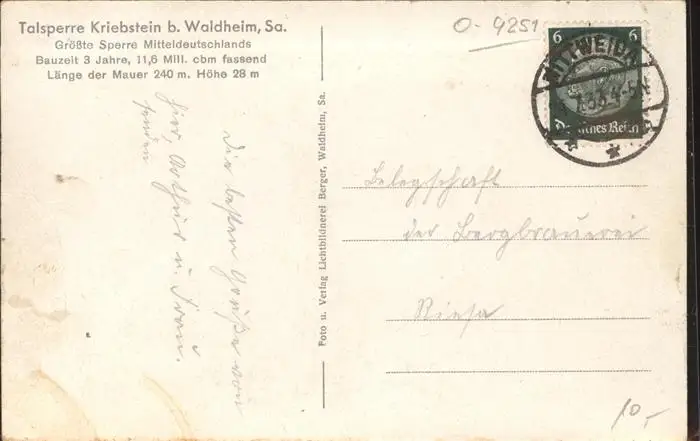 Talsperre Kriebstein b. Waldheim, Sa.
Größte Sperre Mitteldeutschlands
Bauzeit 3 Jahre, 11,6 Mill. cbm fassend
Länge der Mauer 240 m. Höhe 28 m
O-9251
6 6
Deutsches Reich
MITTWEIDA
Die besten Grüße von
hier, Arthur u. Frau.
senden
Foto u. Verlag Lichtbildnerei Berger, Waldheim, Sa.
Belegschaft
der Bergbrauerei
Riesa
10,-